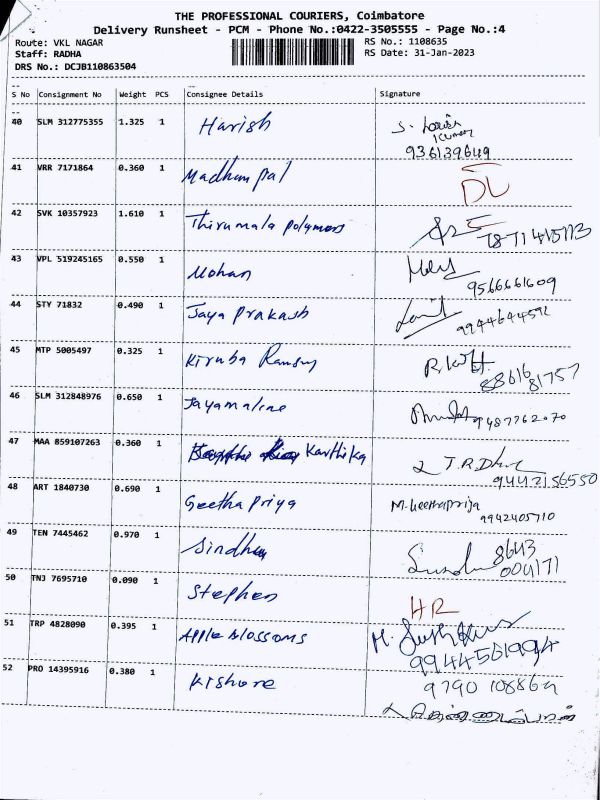 THE PROFESSIONAL COURIERS, Coimbatore
Delivery Runsheet - PCM - Phone No.:0422-3505555 - Page No.:4
Route: VKL NAGAR
RS No.: 1108635
Staff: RADHA
RS Date: 31-Jan-2023
DRS No.: DCJB110863504
S No Consignment No Weight PCS Consignee Details Signature
40 SLM 312775355 1.325 1 Harish
936139649
41 VRR 7171864 0.360 1 Madhum pal DL
42 SVK 10357923 1.610 1 Thirumala polymers
43 VPL 519245165 0.550 1 Mohan
9566661609
44 STY 71832 0.490 1 Jaya Prakash
9944644592
45 MTP 5005497 0.325 1 Kiruba
88616
81757
46 SLM 312848976 0.650 1 Jayamaline
9487762070
47 MAA 859107263 0.360 1 Karthika
9442156550
48 ART 1840730 0.690 1 Geetha Priya M. Geethapriya
9942405710
49 TEN 7445462 0.970 1 Sindhu
8643
004171
50 TNJ 7695710 0.090 1 Stephen HR
51 TRP 4828090 0.395 1 Apple Blossoms
9944561994
52 PRO 14395916 0.380 1 Kishore